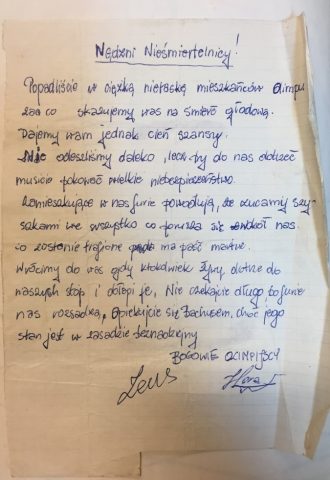 Nędzni Nieśmiertelnicy!
Popadliście w ciężką niełaskę mieszkańców Olimpu
za co skazujemy was na śmierć głodową.
Dajemy wam jednak cień szansy.
Nie odeszliśmy daleko, lecz by do nas dotrzeć
musicie pokonać wielkie niebezpieczeństwo.
Zamieszkujące w nas furie powodują, że rzucamy szy-
szkami we wszystko co porusza się wokół nas
co zostanie trafione ma paść martwe.
Wrócimy do was gdy ktokolwiek żywy, dotrze do
naszych stóp i dotopi je, Nie czekajcie długo, bo furie
nas rozsadzą, Opiekujcie się Bachusem, choć jego
stan jest w zasadzie beznadziejny
BOGOWIE OLIMPIJSCY
Zeus
Hera